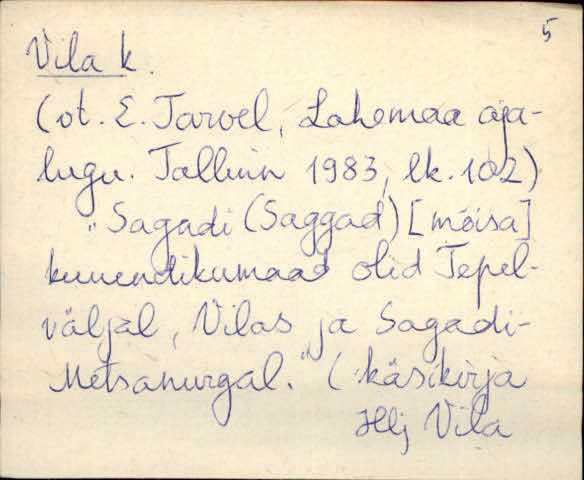 5
Vila k.
(vt. E. Tarvel, Lahemaa aja-
lugu. Tallinn 1983, lk. 102)
"Sagadi (Saggad) [mõisa]
kuuendikumaad olid Tepel-
väljal, Vilas ja Sagadi-
Metsanurgal." (käsikirja
Hlj Vila